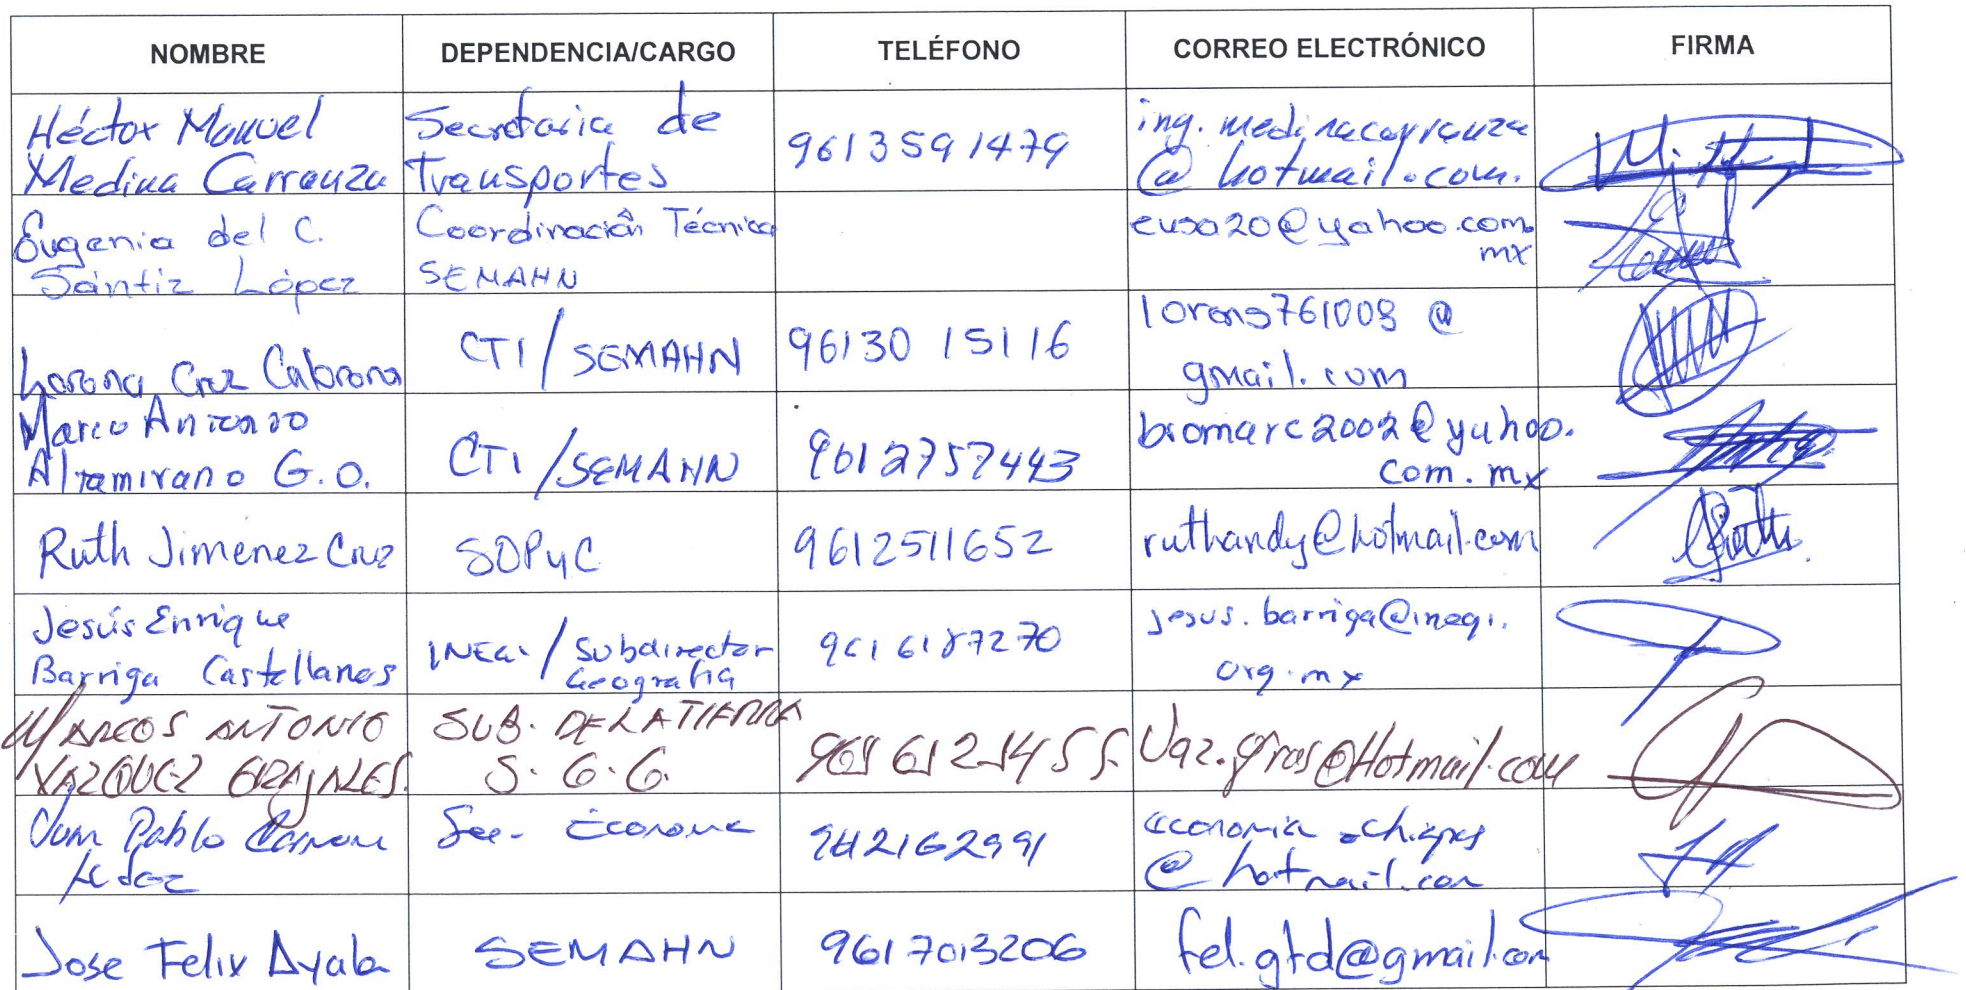 NOMBRE DEPENDENCIA/CARGO TELÉFONO CORREO ELECTRÓNICO FIRMA
Héctor Manuel
Medina Carranza
Secretaria de
Transportes
9613591479
ing.medinacarranza
@hotmail.com.
Eugenia del C.
Sántiz López
Coordinación Técnica
SEMAHN
eusa20@yahoo.com.
mx
Lorena Cruz Cabrera
CTI/SEMAHN
96130 15116
@
gmail.com
Marco Antonio
Altamirano G.O.
CTI/SEMAHN
9612757443
biomarc2002@yahoo.
com.mx
Ruth Jimenez Cruz
SOPyC
9612511652
ruthandy@hotmail.com
Jesús Enrique
Barriga Castellanos
INEGI/Subdirector
Geografia
9616187270
jesus.barriga@inegi.
org.mx
MARCOS ANTONIO
VAZQUEZ GRAJALES.
SUB. DE LA TIERRA
S.G.G.
Vaz.gras@Hotmail.com
Juan Pablo
Sec.
economia
@hotmail.com
Jose Felix Ayala
SEMAHN
9617013206
fel.gtd@gmail.com